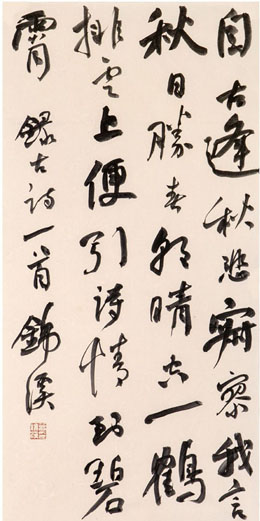 自古逢秋悲寂寥我言
秋日勝春朝晴空一鶴
排雲上便引詩情到碧
霄 録古詩一首 錦溪